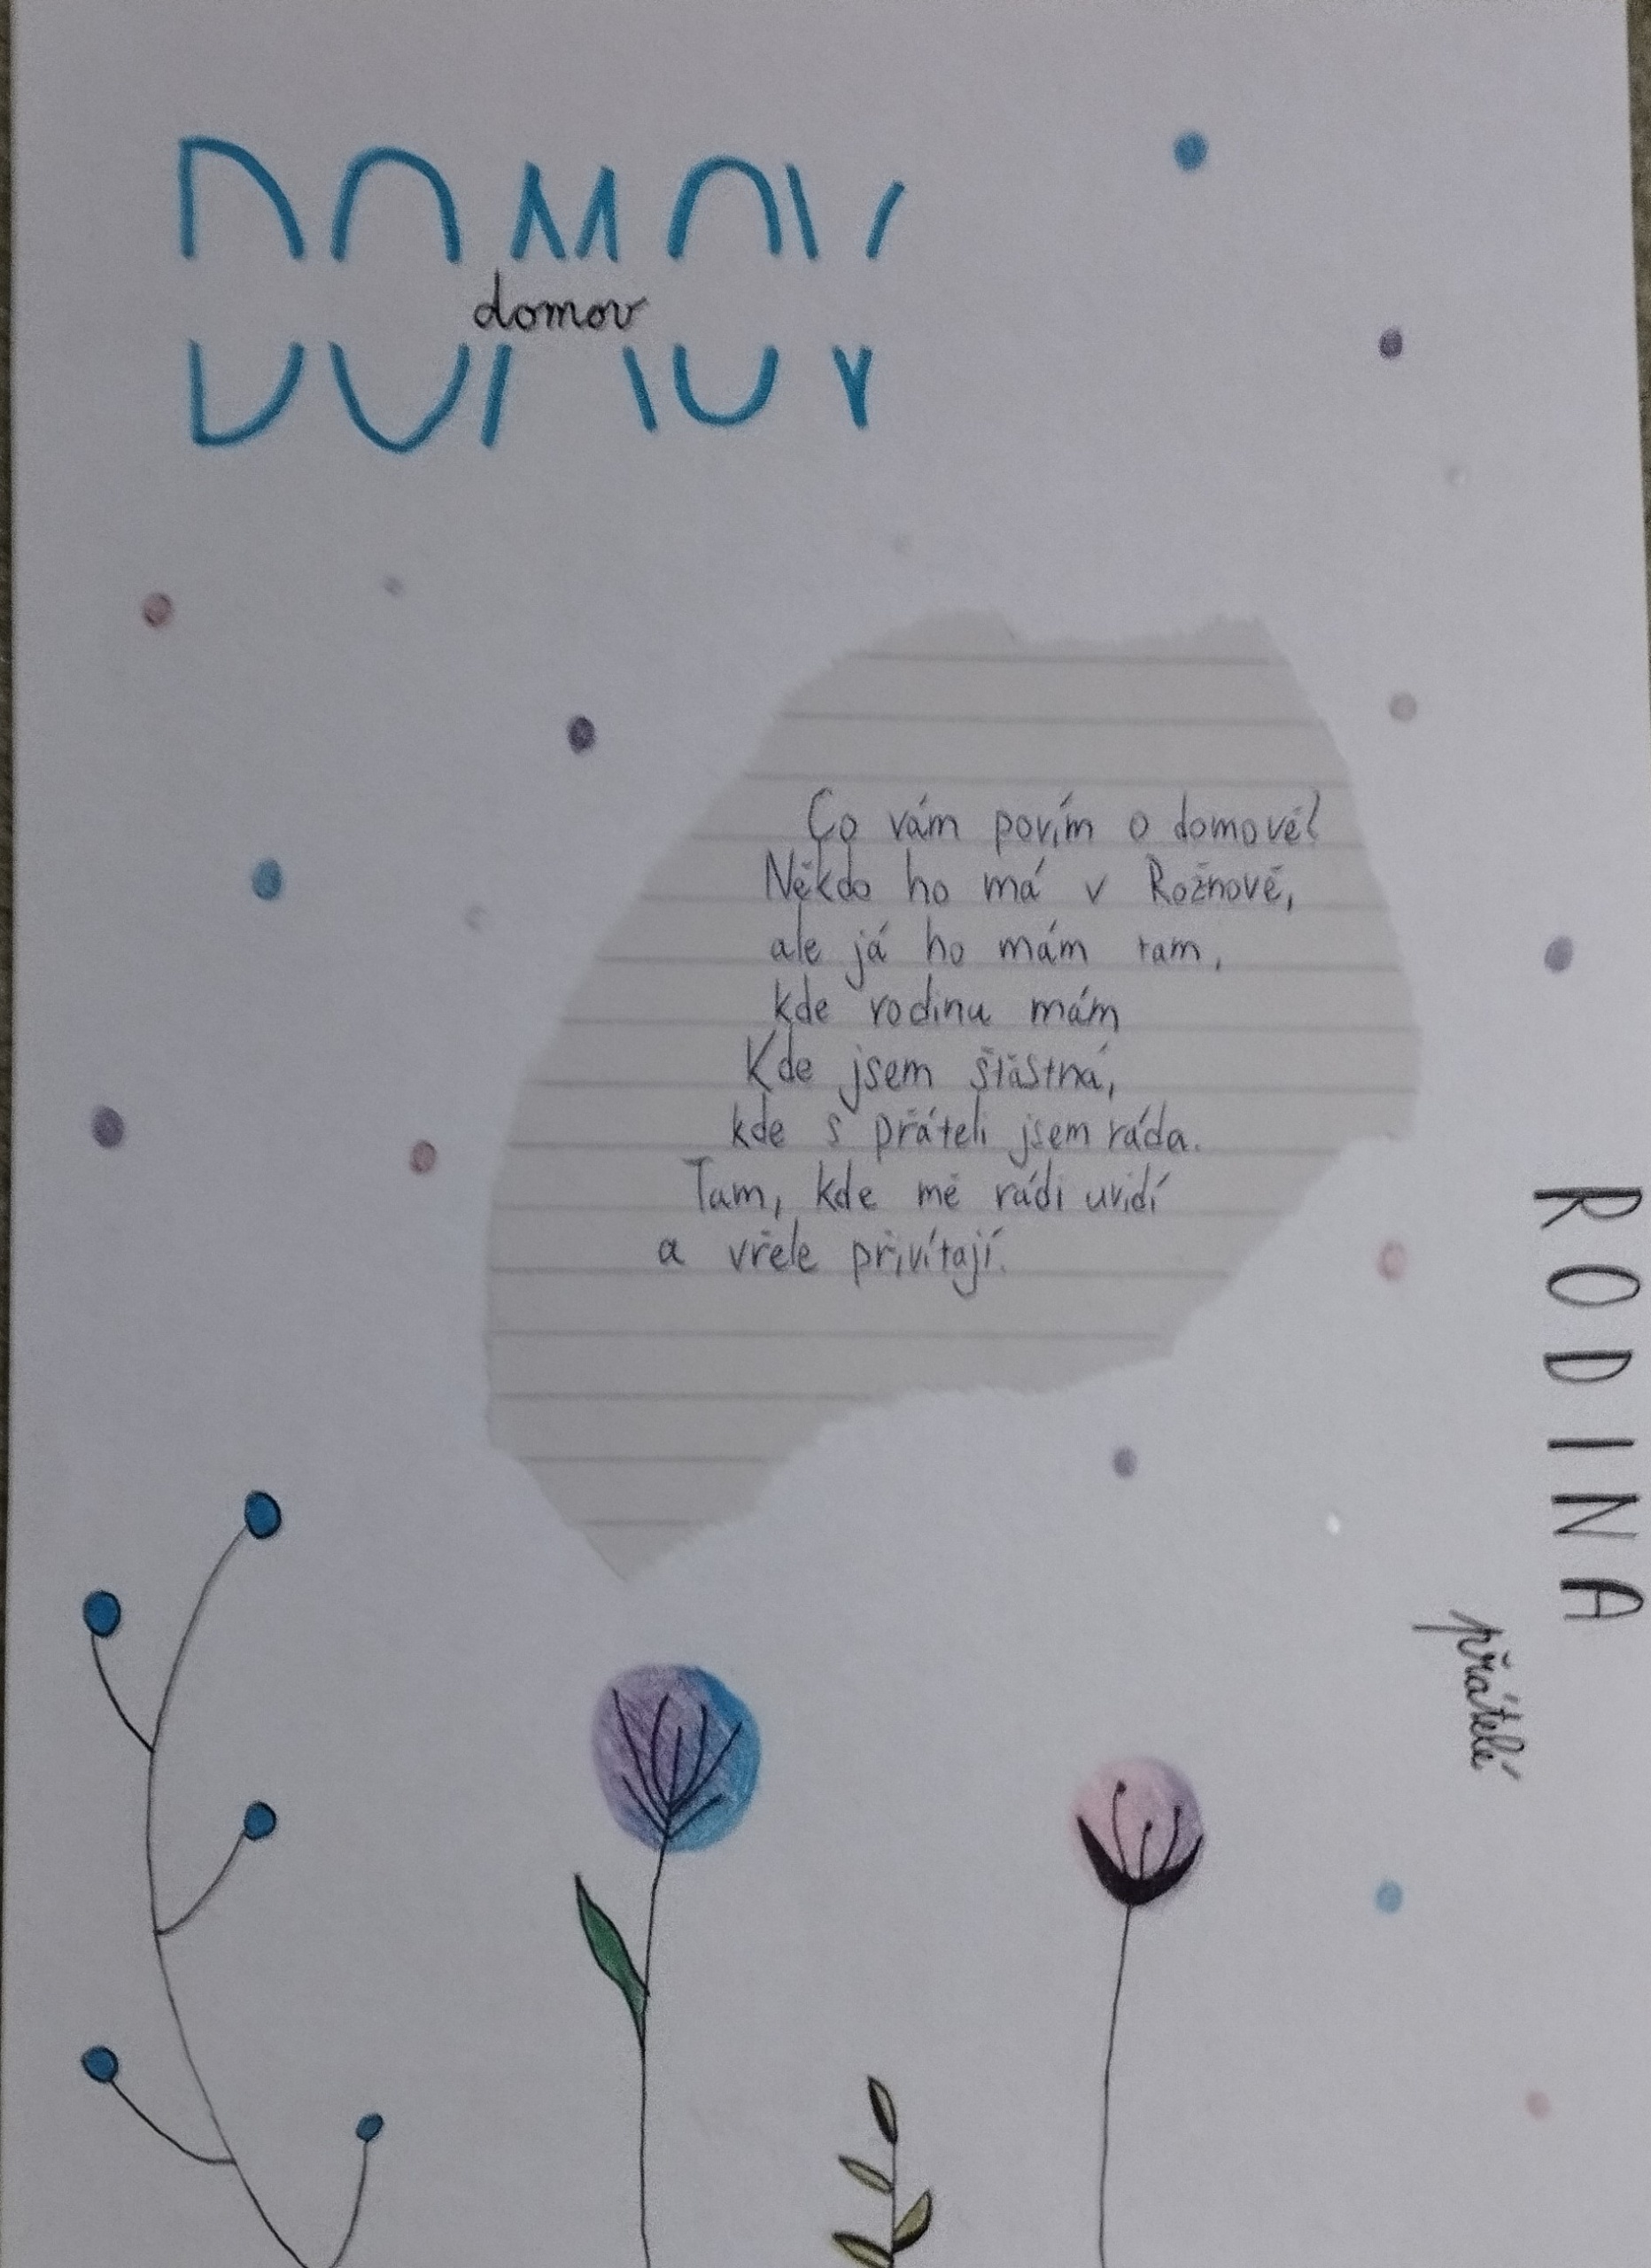 DOMOV
domov
Co vám povím o domově?
Někdo ho má v Rožnově,
ale já ho mám tam,
kde rodinu mám
Kde jsem šťastná,
kde s přáteli jsem ráda.
Tam, kde mě rádi uvidí
a vřele přivítají.
RODINA
přátelé